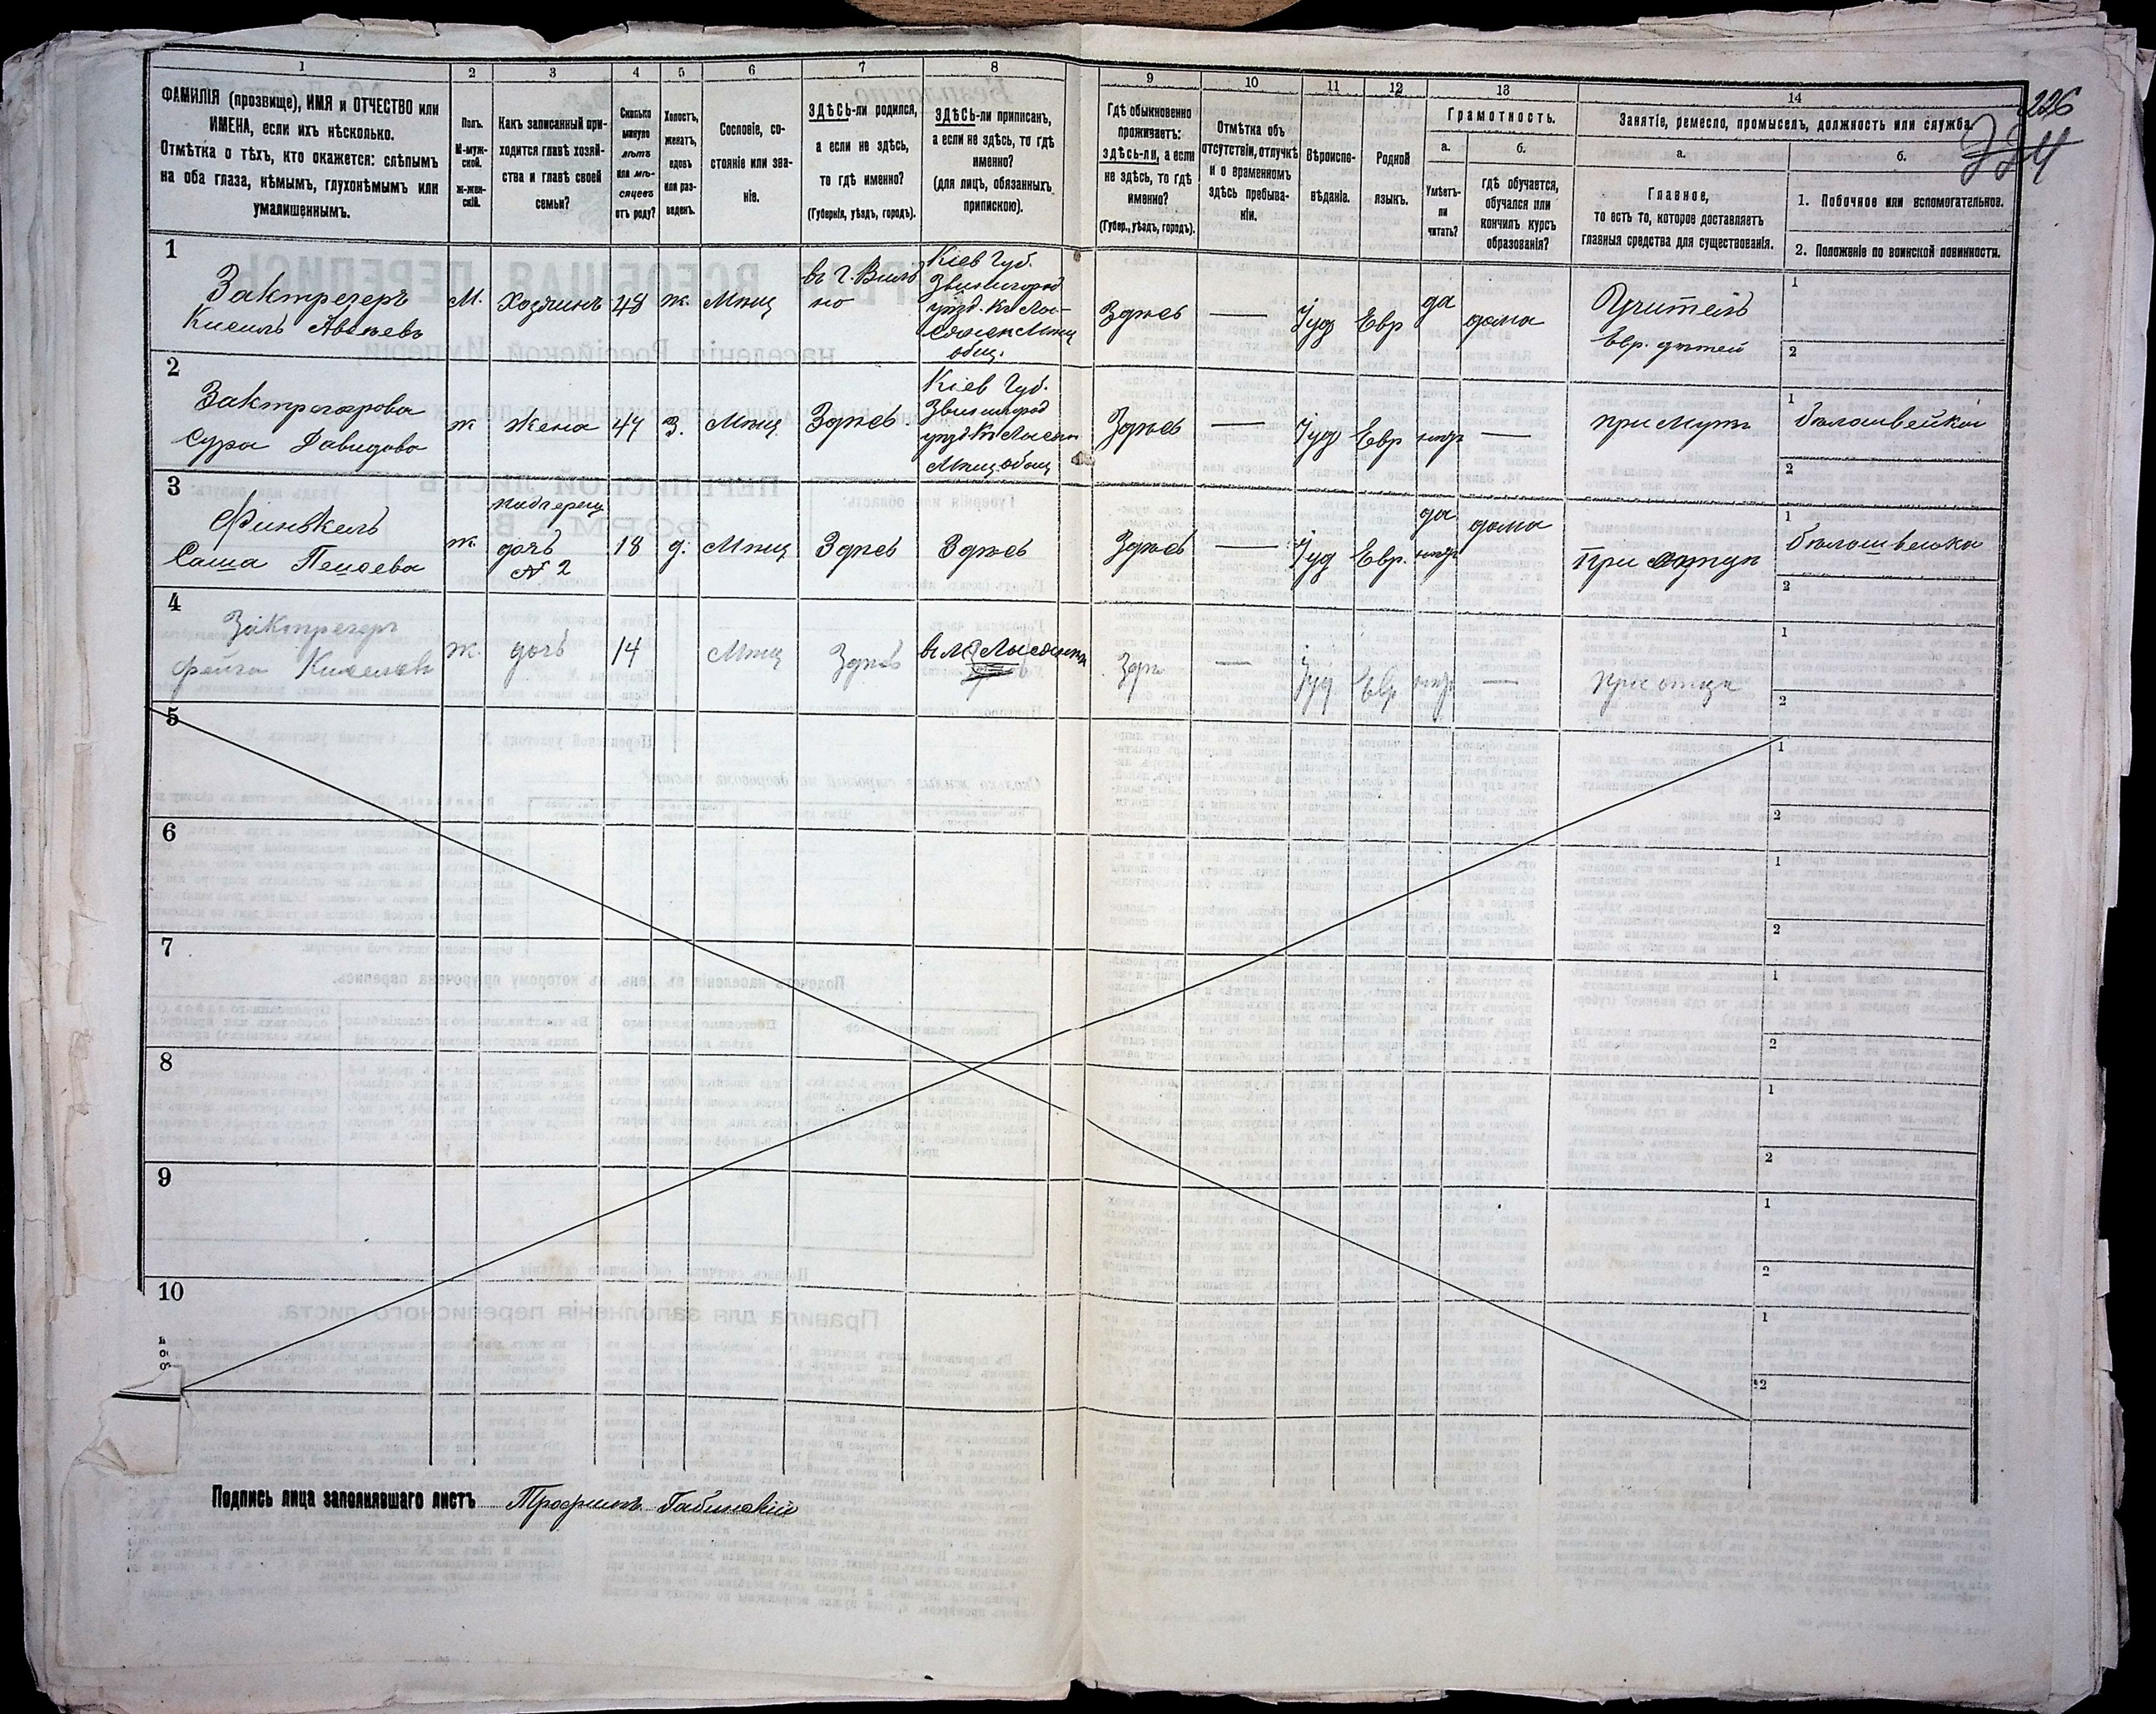 226
224
1
2
3
4
5
6
7
8
9
10
11
12
13
14
ФАМИЛІЯ (прозвище), ИМЯ и ОТЧЕСТВО или
ИМЕНА, если ихъ нѣсколько.
Отмѣтка о тѣхъ, кто окажется: слѣпымъ
на оба глаза, нѣмымъ, глухонѣмымъ или
умалишеннымъ.
Полъ.
М-муж-
ской.
Ж-жен-
скій.
Какъ записанный при-
ходится главѣ хозяй-
ства и главѣ своей
семьи?
Сколько
минуло
лѣтъ
или мѣ-
сяцевъ
отъ роду?
Холостъ,
женатъ,
вдовъ
или раз-
веденъ.
Сословіе, со-
стояніе или зва-
ніе.
ЗДѢСЬ-ли родился,
а если не здѣсь,
то гдѣ именно?
(Губернія, уѣздъ, городъ).
ЗДѢСЬ-ли приписанъ,
а если не здѣсь, то гдѣ
именно?
(для лицъ, обязанныхъ
припискою).
Гдѣ обыкновенно
проживаетъ:
здѣсь-ли, а если
не здѣсь, то гдѣ
именно?
(Губер., уѣздъ, городъ).
Отмѣтка объ
отсутствіи, отлучкѣ
и о временномъ
здѣсь пребыва-
ніи.
Вѣроиспо-
вѣданіе.
Родной
языкъ.
Грамотность.
а.
Умѣетъ-
ли
читать?
б.
гдѣ обучается,
обучался или
кончилъ курсъ
образованія?
Занятіе, ремесло, промыселъ, должность или служба.
а.
Главное,
то есть то, которое доставляетъ
главныя средства для существованія.
б.
1. Побочное или вспомогательное.
2. Положеніе по воинской повинности.
1
Зактрегеръ
Кисиль
М.
Хозяинъ
48
ж.
Мѣщ
въ г. Вильно
Кіев Губ.
Звенигород
уѣзд.
Мѣщ
общ.
Здѣсь
—
Іуд
Евр
да
дома
Учитель
Евр. дѣтей
1
2
2
Зактрегерова
Сура Давидова
ж
Жена
47
З.
Мѣщ
Здѣсь.
Кіев Губ.
Звенигород
Мѣщ. общ
Здѣсь
—
Іуд
Евр
нѣтъ
—
при мужѣ
1
бѣлошвейкой
2
3
Финкель
Саша
ж.
падчерица
дочь
№ 2
18
д.
Мѣщ
Здѣсь
Здѣсь
Здѣсь
—
Іуд
Евр.
да
нѣтъ
дома
При отцѣ
1
бѣлошвейка
2
4
Зактрегеръ
Фейга Киселева
ж.
дочь
14
Мѣщ
Здѣсь
въ м. Лысянкѣ
Здѣс
—
Іуд
Евр
нѣтъ
—
при отцѣ
1
2
5
1
2
6
1
2
7
1
2
8
1
2
9
1
2
10
1
2
Подпись лица заполнявшаго листъ Трофимъ Габинскій